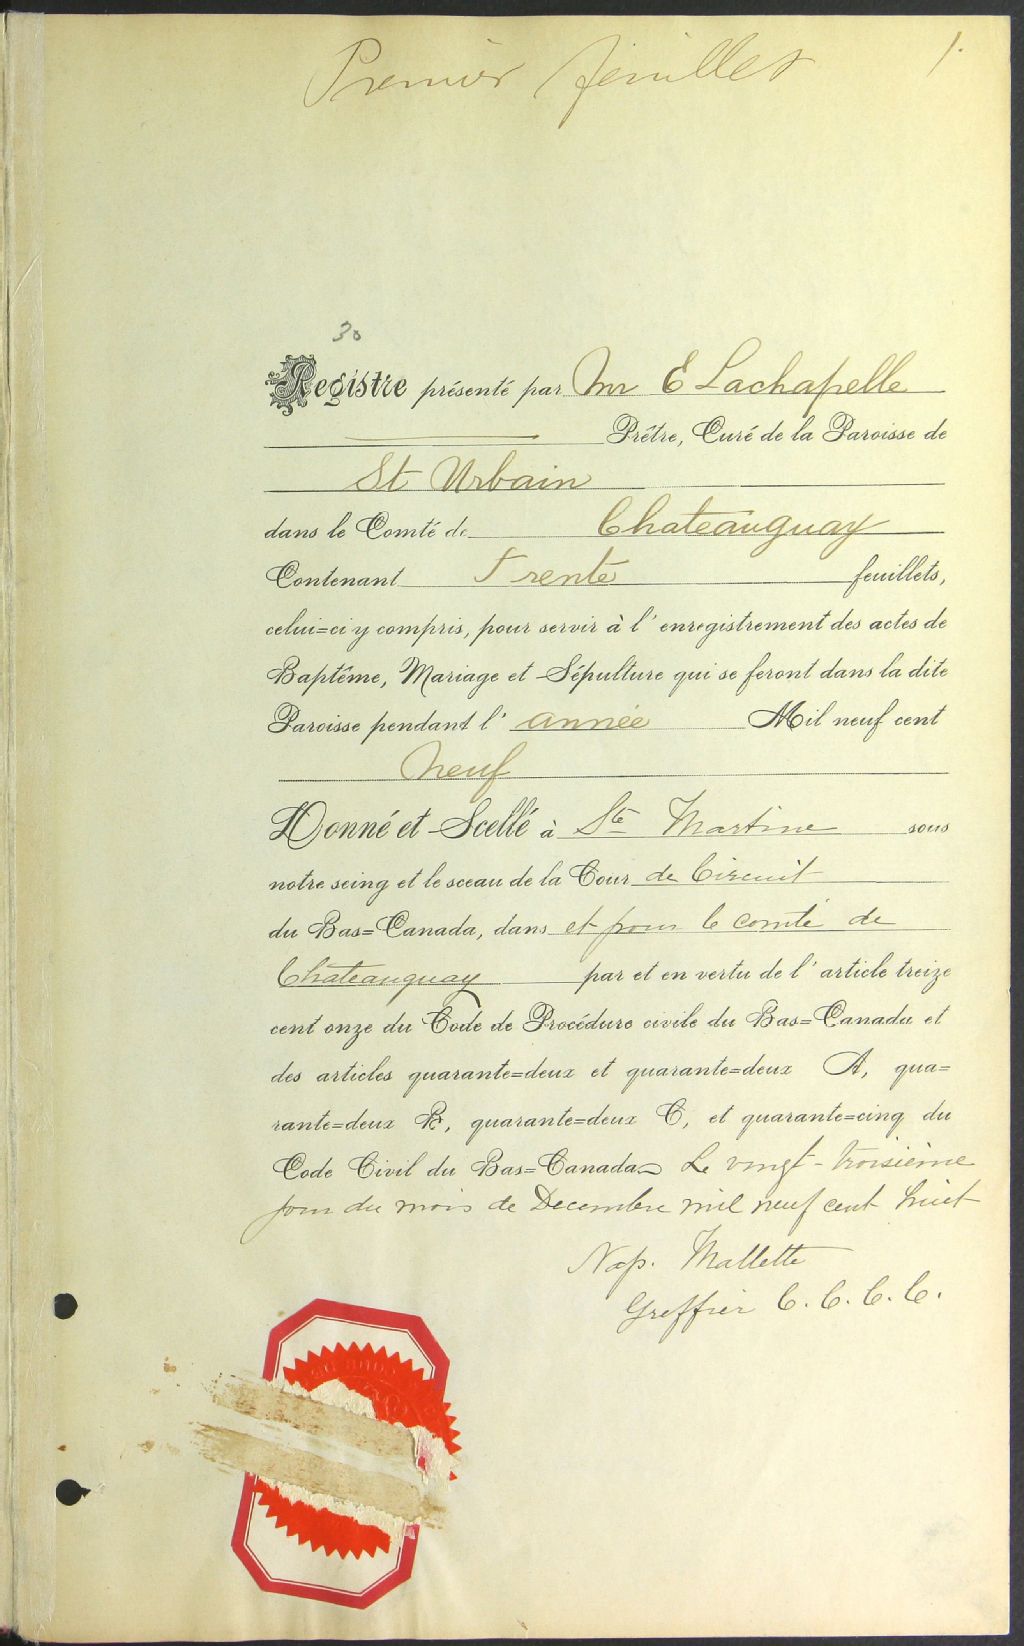 Premier feuillet 1.
30
Registre présenté par Mr E Lachapelle
Prêtre, Curé de la Paroisse de
St Urbain
dans le Comté de Chateauguay
Contenant Trente feuillets,
celui=ci y compris, pour servir à l'enregistrement des actes de
Baptême, Mariage et Sépulture qui se feront dans la dite
Paroisse pendant l'année Mil neuf cent
neuf
Donné et Scellé à Ste Martine sous
notre seing et le sceau de la Cour de Circuit
du Bas=Canada, dans et pour le comté de
Chateauguay par et en vertu de l'article treize
cent onze du Code de Procédure civile du Bas=Canada et
des articles quarante=deux et quarante=deux A, qua=
rante=deux B, quarante=deux C, et quarante=cinq du
Code Civil du Bas=Canada Le vingt-troisième
jour du mois de Decembre mil neuf cent huit
Nap. Mallette
Greffier C. C. C. C.